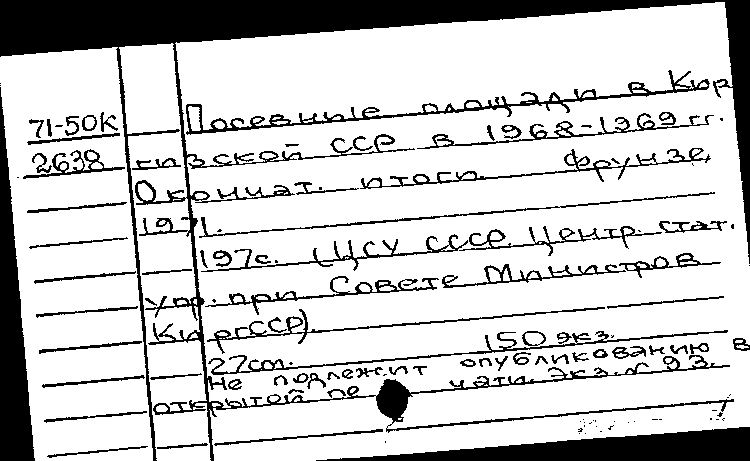 71-50К Посевные площади в Кир
2638 гизской ССР в 1968-1969 гг.
Окончат. итоги. Фрунзе,
1971.
197с. (ЦСУ СССР. Центр. стат.
упр. при Совете Министров
КиргССР).
27см. 150 экз.
Не подлежит опубликованию в
открытой пе чати. Экз. № 93.